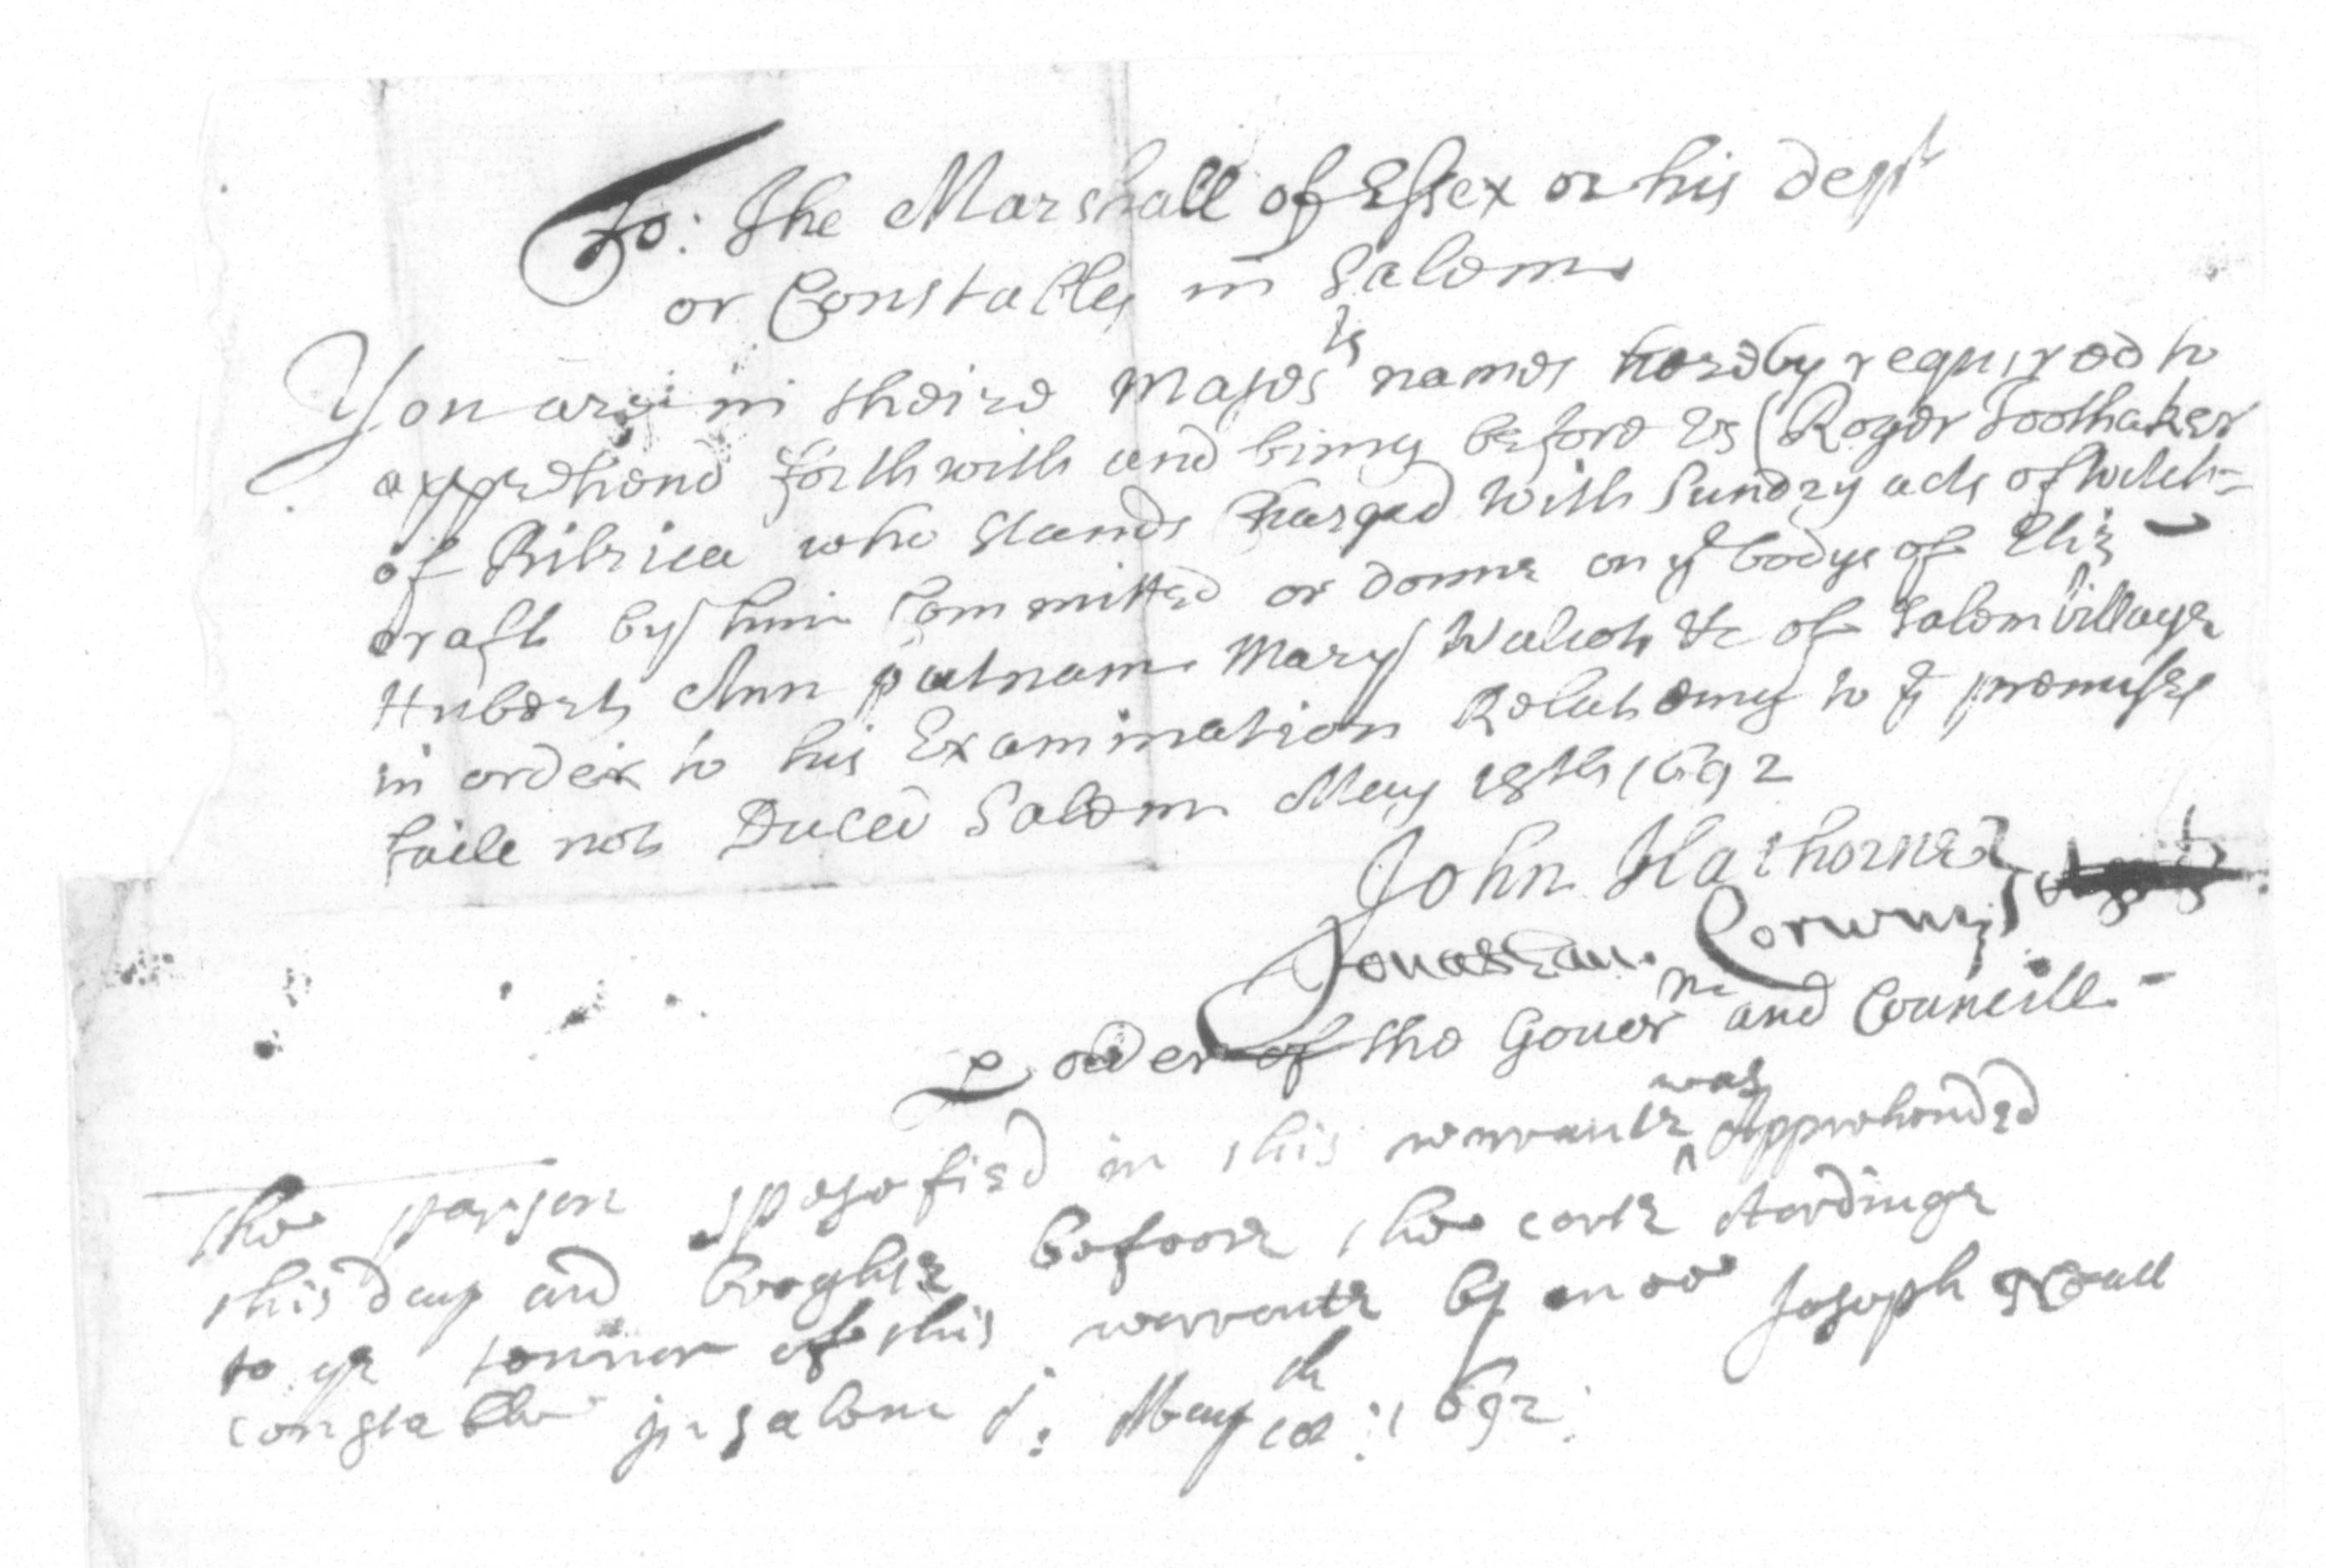 To: The Marshall of Essex or his dept
or Constables in Salem
You are in theire Majestˢ names hereby required to
apprehend forthwith and bring before us (Roger Toothaker
of Bilrica who stands charged with Sundry acts of witch-
craft by him committed or donne on yᵉ bodys of Eliz
Hubert, Ann putnam Mary Walcot &c of Salem Village
in order to his Examination Relateing to yᵉ premises
faile not Dated Salem May 18th 1692
John Hathorne
Jonathan. Corwin
P order of the Goverⁿᵉ and Councill
the parson spesefied in this warrante was Apprehended
this day and broghte befoore the corte Acordinge
to ye tennor of this warrante by mee Joseph Neall
constable in salem May 18ᵗʰ: 1692